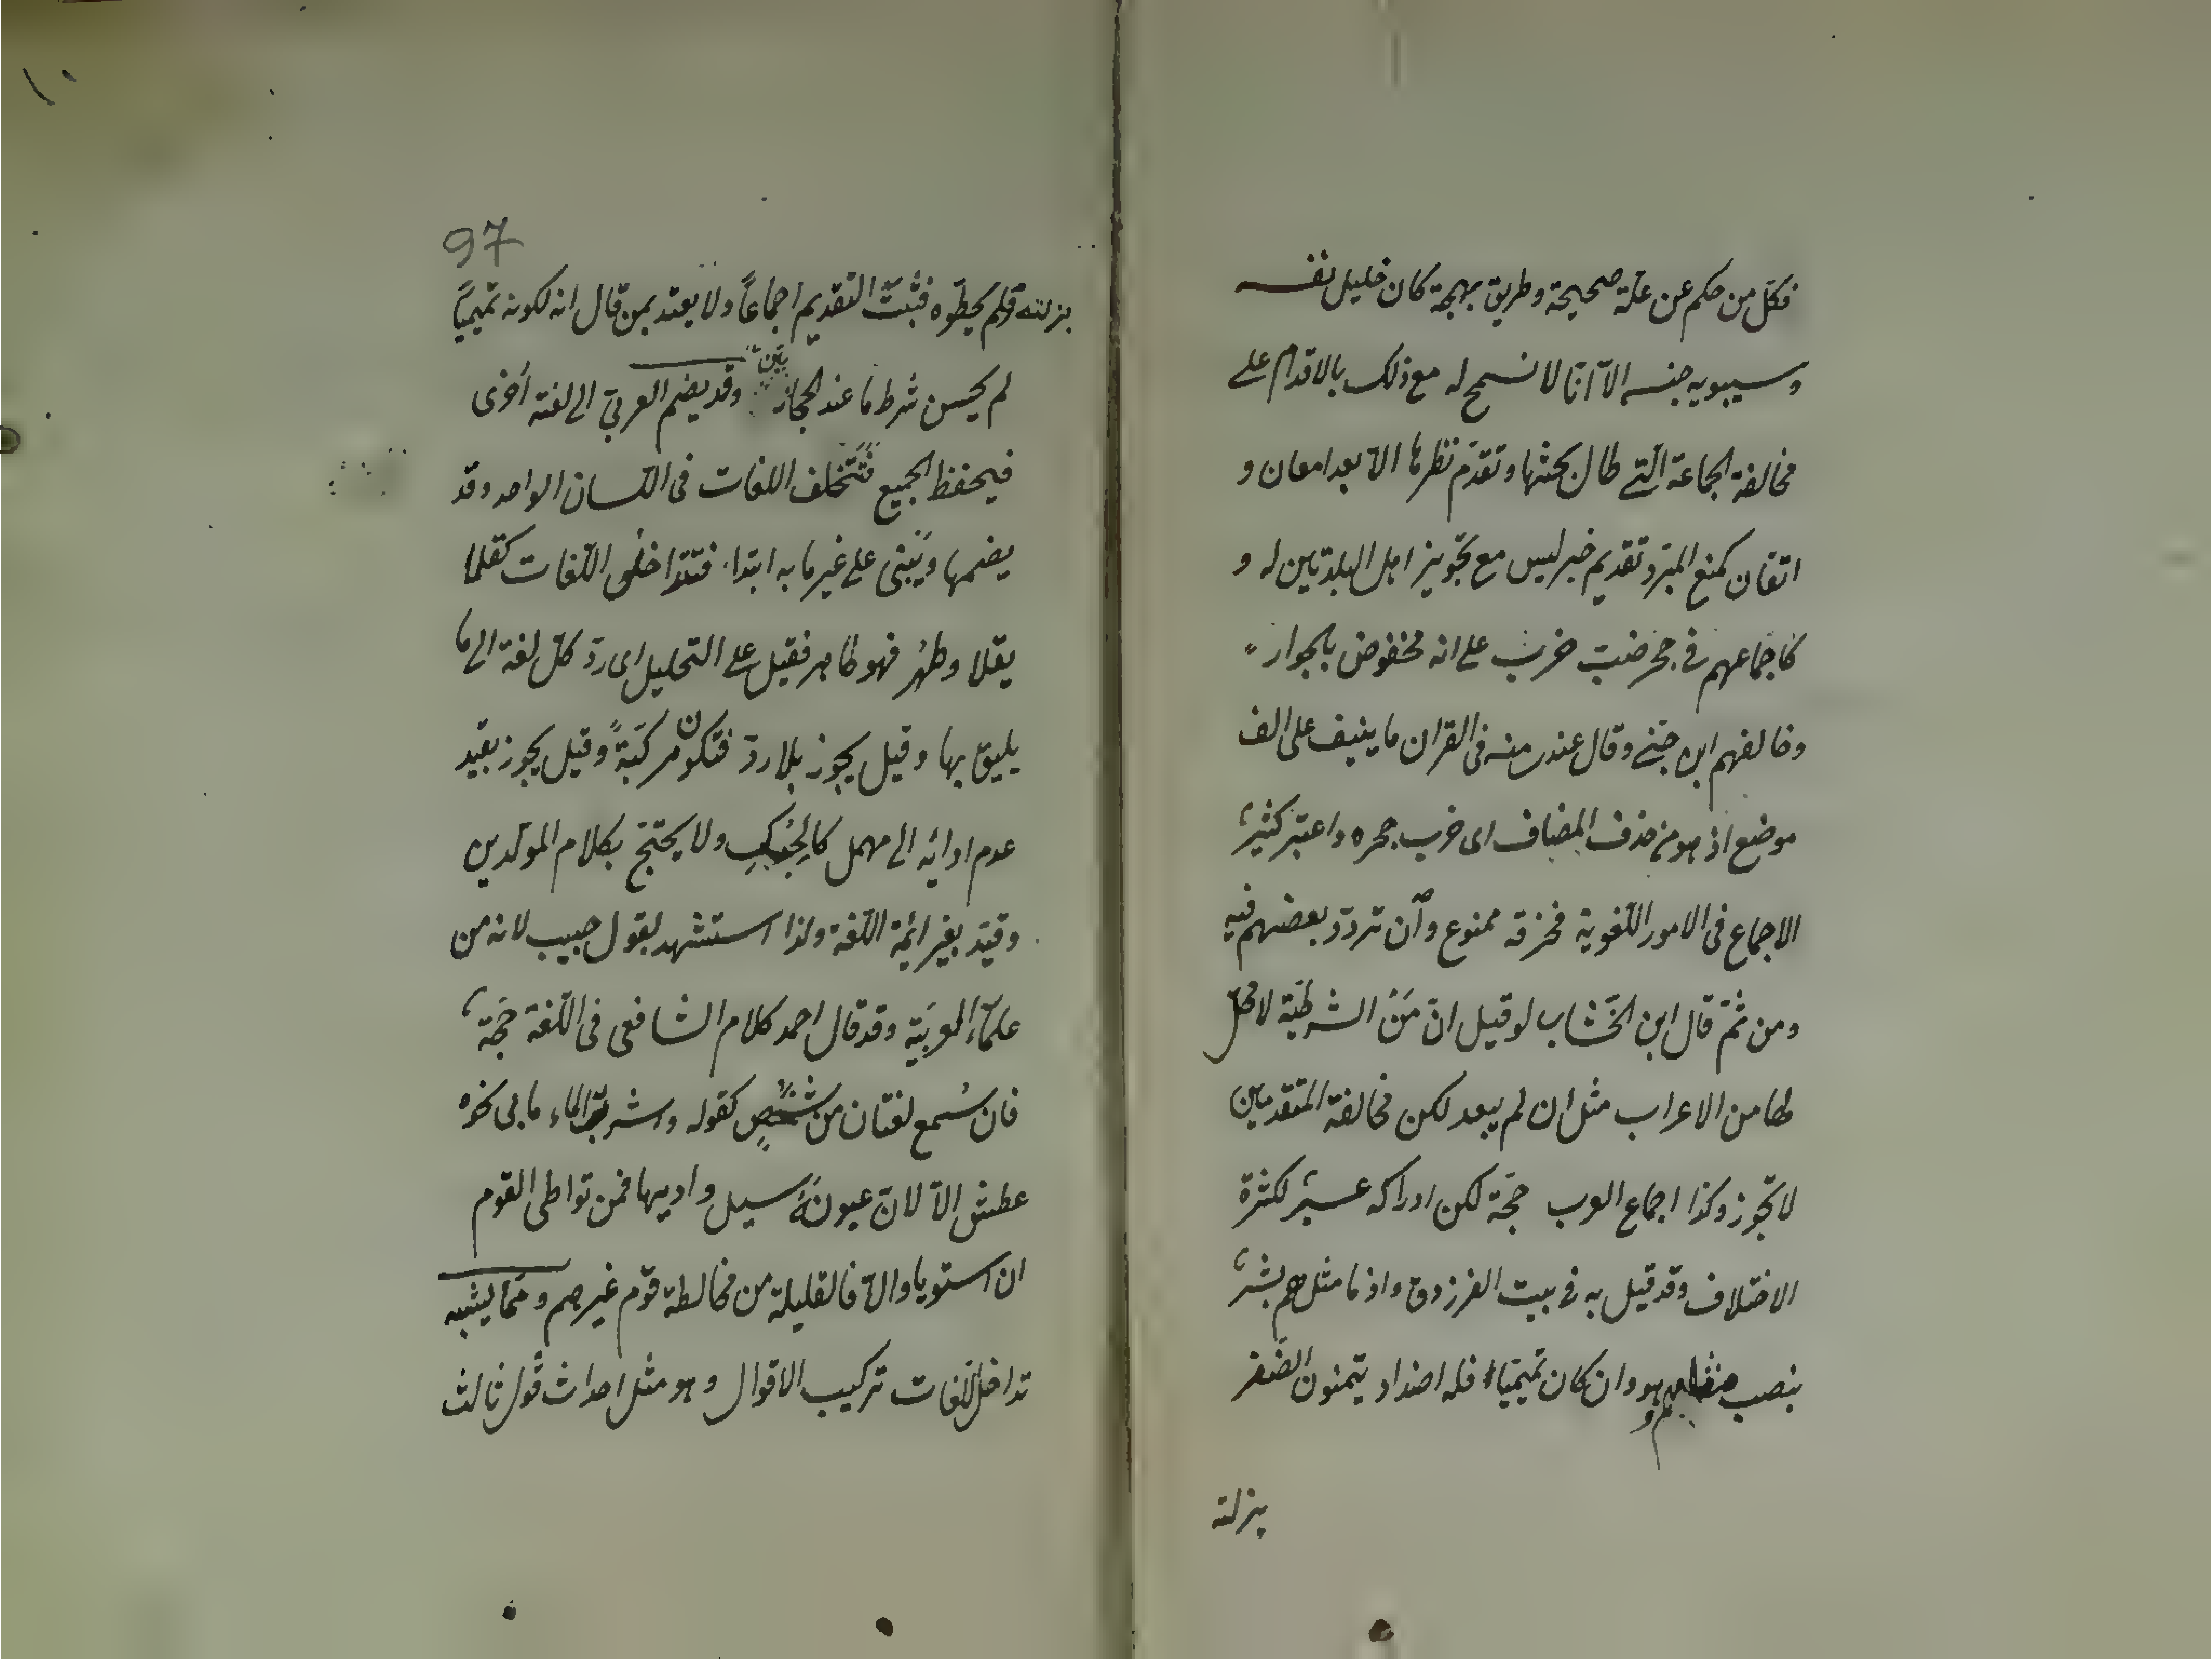 فكلّ من حكم عن علّة صحيحة وطريق بهجة كان خليل نفسه
وسيبويه جنسه الاّ انّا لا نسمح له مع ذلك بالاقدام على
مخالفة الجماعة الّتى طال بحثها وتقدّم نظرها الاّ بعد امعان و
اتقان كمنع المبرّد تقديم خبر ليس مع تجويز اهل البلدتين له و
كاجماعهم فى جحر ضبّ خرب على انه مخفوض بالجوار
وخالفهم ابن جنّى وقال عندى منه فى القران ما ينيف على الف
موضع اذ هو من حذف المضاف اى خرب جحره واعتبر كثيرٌ
الاجماع فى الامور اللّغوية فخرقه ممنوع وان تردّد بعضهم فيه
ومن ثمّ قال ابن الخشّاب لو قيل انّ مَنْ الشرطيّة لا محلّ
لها من الاعراب مثل ان لم يبعد لكن مخالفة المتقدمين
لا تجوز وكذا اجماع العرب حجّة لكن ادراكه عسيرٌ لكثرة
الاختلاف وقد قيل به فى بيت الفرزدق واذ ما مثلهم بشرٌ
بنصب مثلهم هو وان كان تميميّا فله اضداد يتمنون الظفر
بزلته
10
97
بزلته فلم يخطّوه فثبت التقديم اجماعاً ولا يعتد بمن قال انه لكونه تميميّاً
لم يحسن شرط ما عند الحجازيّين وقد يضم العربىّ الى لغته اُخرى
فيحفظ الجميع فتتخلف اللغات فى اللّسان الواحد وقد
يضمها ويَبْنى على غير ما به ابتدا فتتداخل اللّغات كقلا
يقلا وطهُر فهو طاهر فقيل على التحليل اى ردّ كلّ لغة الى ما
يليق بها وقيل يجوز بلا ردّ فتكون مركّبةً وقيل يجوز بقيد
عدم ادائه الى مهمل كالحِبُك ولا يحتجّ بكلام المولّدين
وقيّد بغير ائمّة اللّغة ولذا استشهد بقول حبيب لانه من
علماء العربيّة وقد قال احمد كلام الشافعى فى اللّغة حجّةٌ
فان سُمع لغتان من شخصٍ كقوله واشرب الماء ما بى نحوه
عطش الاّ لانّ عيونهْ سيل واديها فمن تواطى القوم
ان استويا والاّ فالقليلة من مخالطة قوم غيرهم وممّا يشبه
تداخل اللّغات تركيب الاقوال وهو مثل احداث قول ثالث